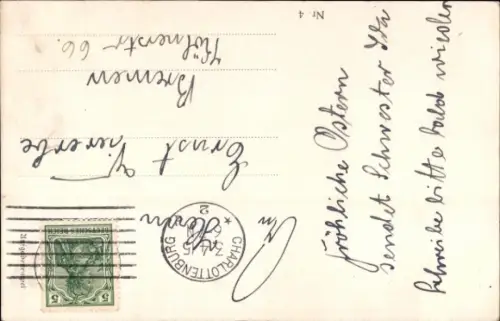 Fröhliche Ostern
sendet Schwester Ida
Schreibe bitte bald wieder
Nr 4
An
Herrn
Ernst
Bremen
Kölnerstr 66.
CHARLOTTENBURG
2
DEUTSCHES REICH
5 5